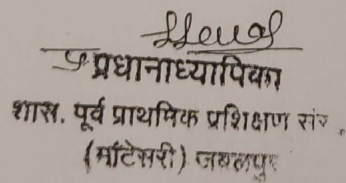 प्रधानाध्यापिका
शास. पूर्व प्राथमिक प्रशिक्षण सं
(मॉटेसरी) जबलपुर